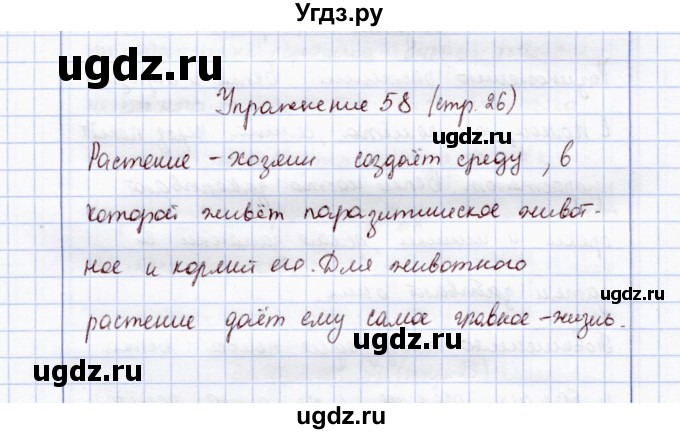 Угдз.ру
ugdz.ru
ugdz.ru
Упражнение 58 (стр. 26)
ugdz.ru
Растение - хозяин создаёт среду, в
ugdz.ru
которой живёт паразитическое живот-
ugdz.ru
ное и кормит его. Для животного
ugdz.ru
растение даёт ему самое главное - жизнь.
ugdz.ru
ugdz.ru
ugdz.ru
ugdz.ru